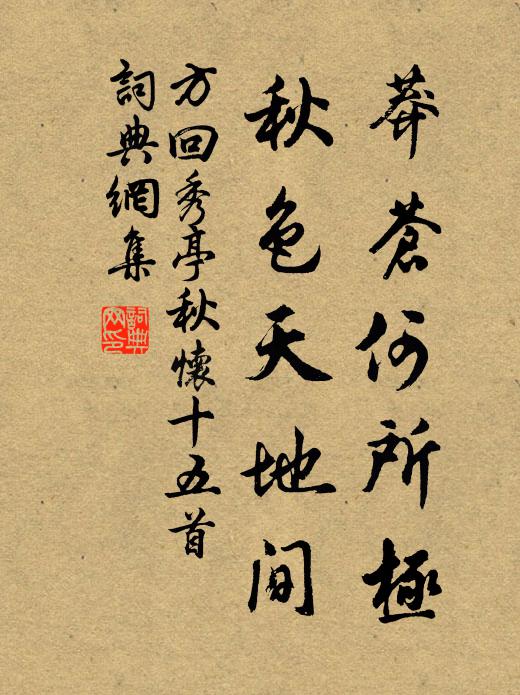 莽蒼何所極
秋色天地間
方回秀亭秋懷十五首
詞典網集
詞典网印